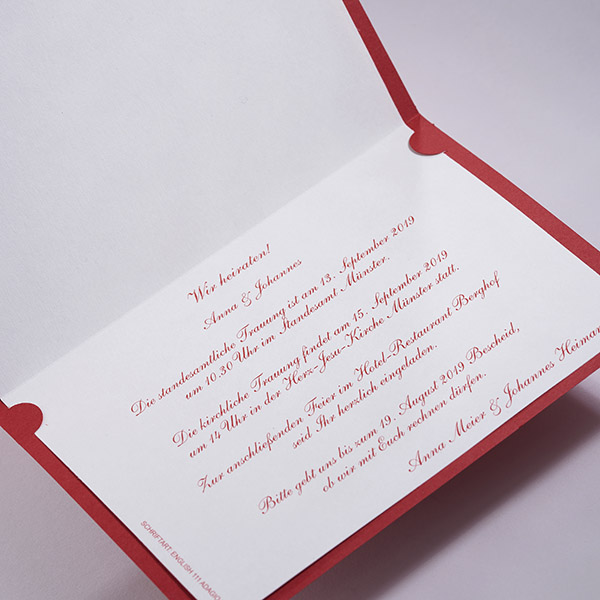 Wir heiraten!
Anna & Johannes
Die standesamtliche Trauung ist am 13. September 2019
um 10.30 Uhr im Standesamt Münster.
Die kirchliche Trauung findet am 15. September 2019
um 14 Uhr in der Herz-Jesu-Kirche Münster statt.
Zur anschließenden Feier im Hotel-Restaurant Berghof
seid Ihr herzlich eingeladen.
Bitte gebt uns bis zum 19. August 2019 Bescheid,
ob wir mit Euch rechnen dürfen.
Anna Meier & Johannes Heiman
SCHRIFTART ENGLISH 111 ADAGIO